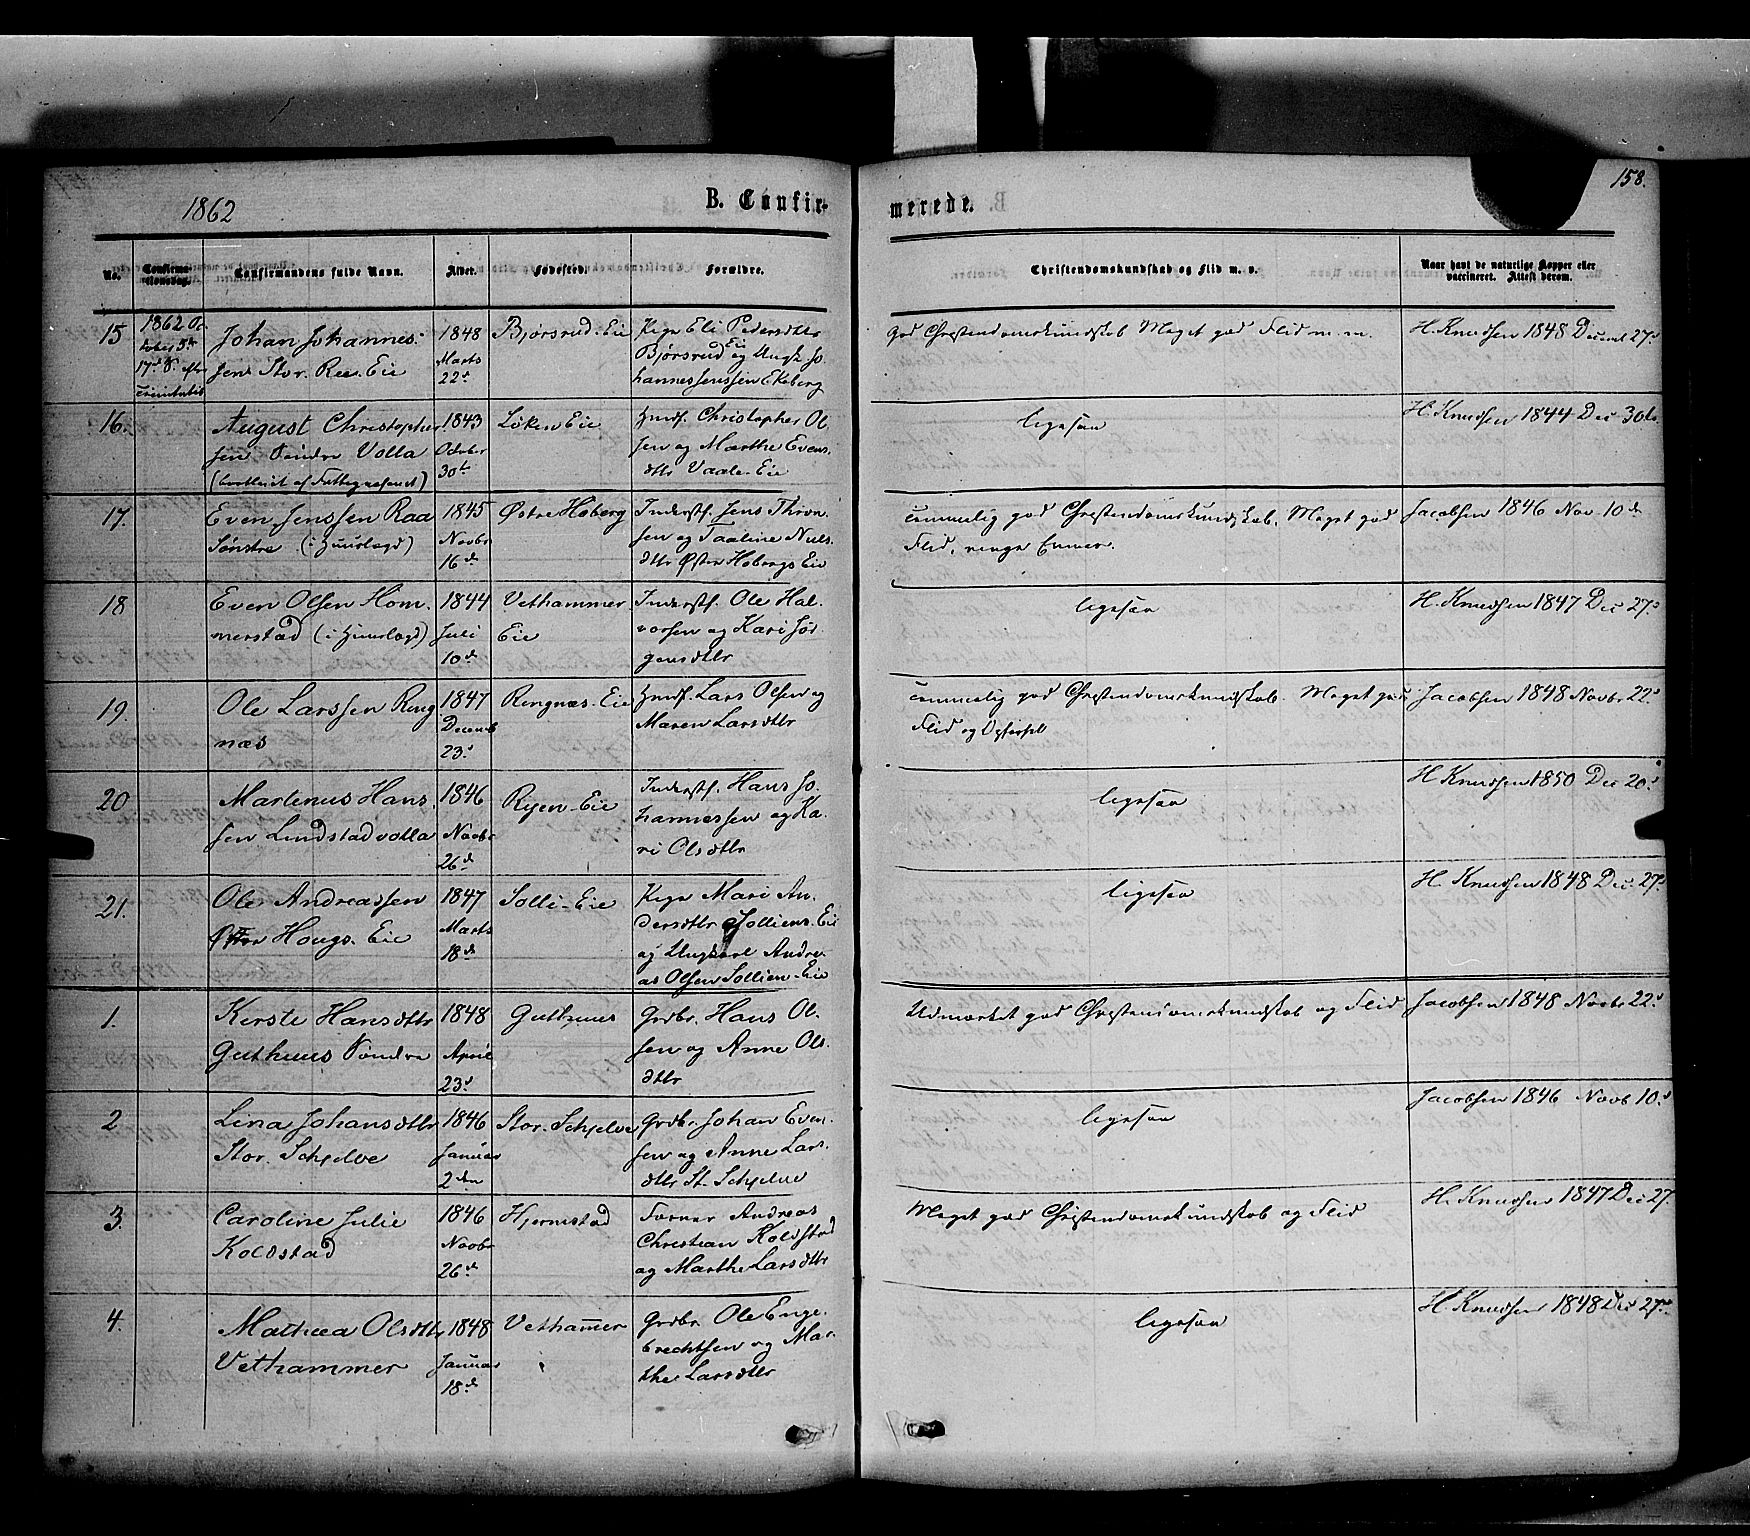 158.
1862
B. Confir-
merede.
No.
Confirma-
tionsdag.
Confirmandens fulde Navn.
Alder.
Fødested.
Forældre.
Christendomskundskab og Flid m. v.
Naar havt de naturlige Kopper eller
vaccineret. Attest derom.
15
1862 Oc
tober 5te
17de S. efter
Trinitatis
Johan Johannes-
sen Stor. Ree. Eie
1848
Marts
22d
Bjørsrud-Eie
Pige Eli Pedersdtr
Bjørsrud Eie og Ungk. Jo
hannes Jenssen Ekeberg
God Christendomskundskab Meget god Flid m. m.
H. Knudsen 1848 Decmb 27d
16.
August Christopher
sen Søndre Volla
1843
October
30te
Løken Eie
Huusf. Christopher Ol
sen og Marthe Evens
dtr Vaale-Eie
ligesaa
H. Knudsen 1844 Dec 30te
17.
Even Jenssen Raa
Sønstre (i Huuslægd)
1845
Novbr
16de
Østre Hoberg
Inderstf. Jens Thron
sen og Taaline Niels
dtr Østre Hobergs Eie
temmelig god Christendomskundskab. Meget god
Flid, ringe Evner.
Jacobsen 1846 Nov. 10de
18
Even Olsen Hom-
merstad (i Huuslægd)
1844
Juli
10de
Vethammer
Eie
Inderstf. Ole Hal-
vorsen og Kari Jør
gensdtr
ligesaa
H. Knudsen 1847 Dec 27d
19.
Ole Larssen Ring
næs
1847
Decemb
23d
Ringnæs-Eie
Huusf. Lars Olsen og
Maren Larsdtr
temmelig god Christendomskundskab. Meget god
Flid og Opførsel
Jacobsen 1848 Novbr 22d
20
Martinus Hans
sen Lundstadvolla
1846
Novbr
26de
Ryen-Eie
Inderstf. Hans Jo
hannessen og Ka-
ri Olsdtr
ligesaa
H Knudsen 1850 Dec 20d
21.
Ole Andreassen
Øster Hougs. Eie
1847
Marts
18de
Solli-Eie
Pige Mari An
dersdtr Solliens. Eie
og Ungkarl Andre-
as Olsen Sollien-Eie
ligesaa
H. Knudsen 1848 Dec. 27d
1.
Kerste Hansdtr
Guthuus Søndre
1848
April
23d
Guthuus
Grdbr. Hans Ol-
sen og Anne Ols-
dtr
Udmærket god Christendomskundskab og Flid
Jacobsen 1848 Novbr 22d
2
Lina Johansdtr
Stor. Schjelve
1846
Januar
2den
Stor. Schjelve
Grdbr. Johan Even-
sen og Anne Lars
dtr St. Schjelve
ligesaa
Jacobsen 1846 Novb 10d
3.
Caroline Julie
Koldstad
1846
Novbr
26d
Hjernstad
Farver Andreas
Christian Koldstad
og Marthe Larsdtr
Meget god Christendomskundskab og Flid
H. Knudsen 1847 Dec 27.
4.
Mathea Olsdtr
Vethammer
1848
Januar
18de
Vethammer
Grdbr. Ole Enge-
brechtsen og Mar-
the Larsdtr
ligesaa
H. Knudsen 1848 Dec 27d